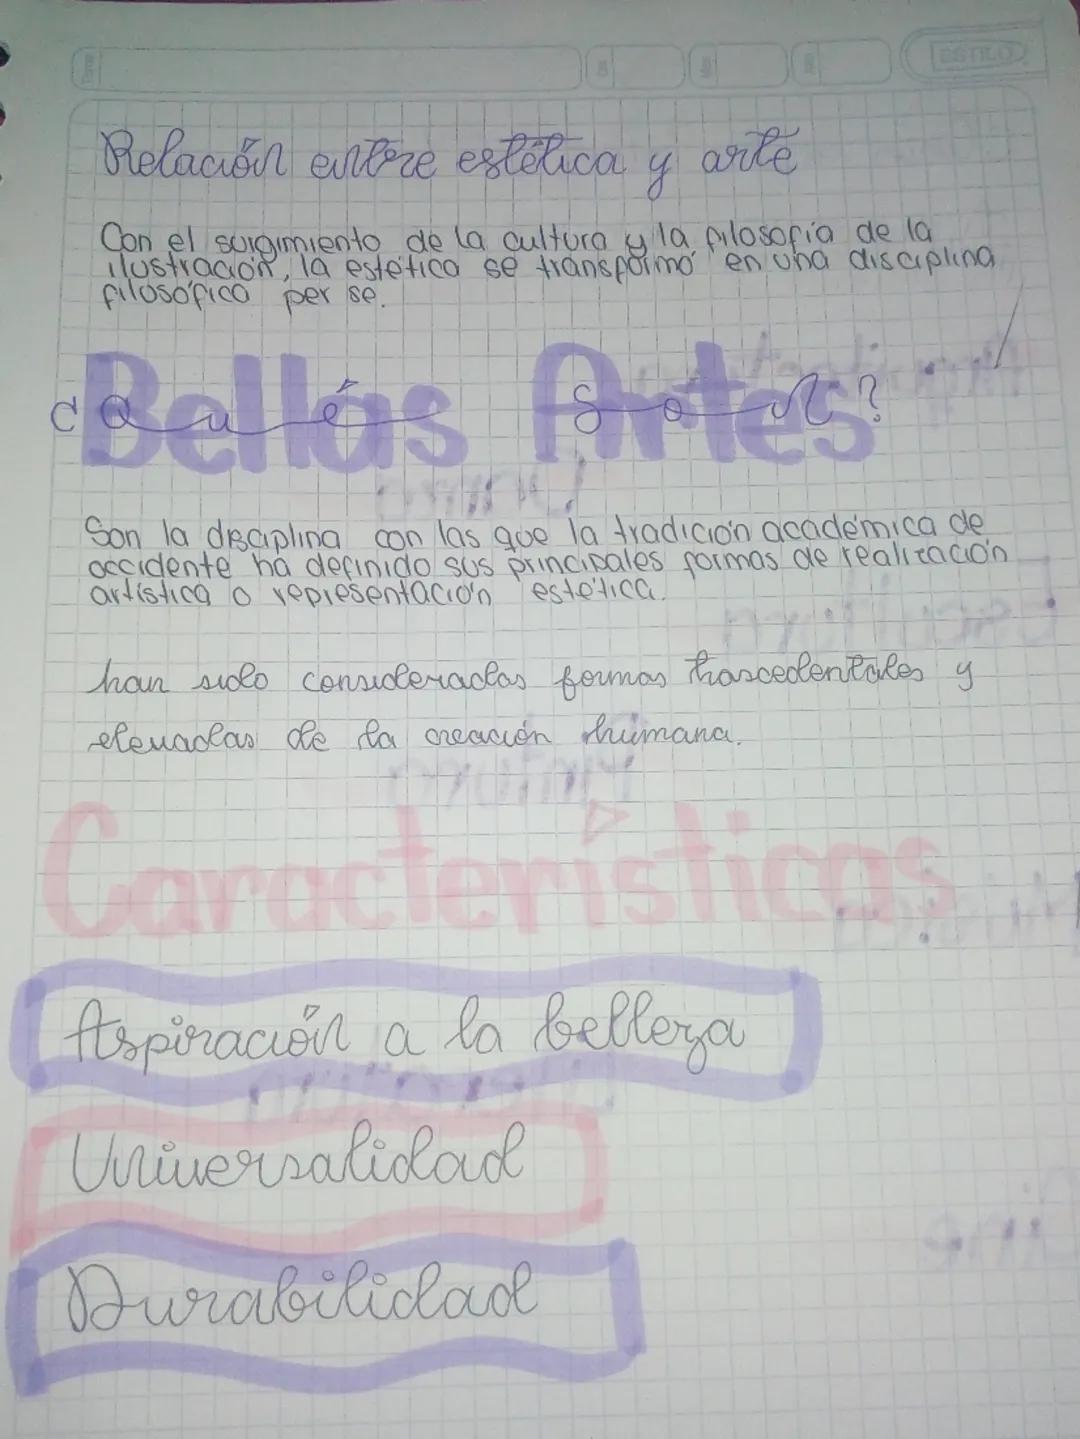 ESTILO
Relación entre estética y arte
Con el surgimiento de la cultura y la filosofía de la
ilustración, la estética se transformó en una disciplina
filosófica per se.
Bellas Artes
¿Qué son?
Son la disciplina con las que la tradición académica de
occidente ha definido sus principales formas de realización
artística o representación estética.
han sido consideradas formas trascedentales y
elevadas de la creación humana.
Características
Aspiración a la belleza
Universalidad
Durabilidad